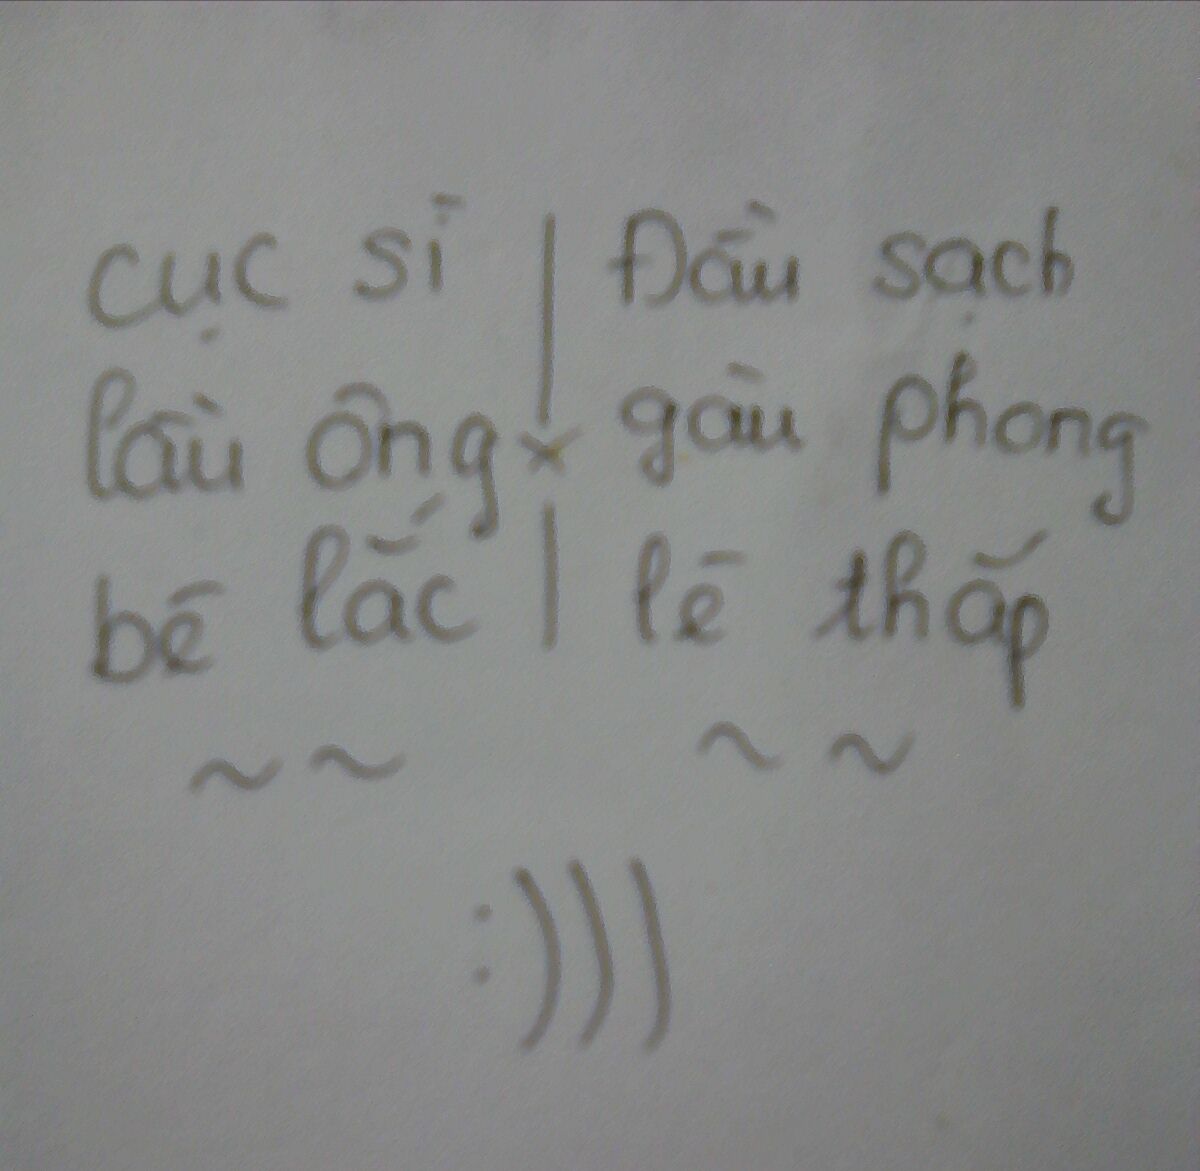 cục sĩ | Đầu sạch
lầu ông x gàu phong
bé lắc | lé thấp
~ ~ ~ ~
:)))